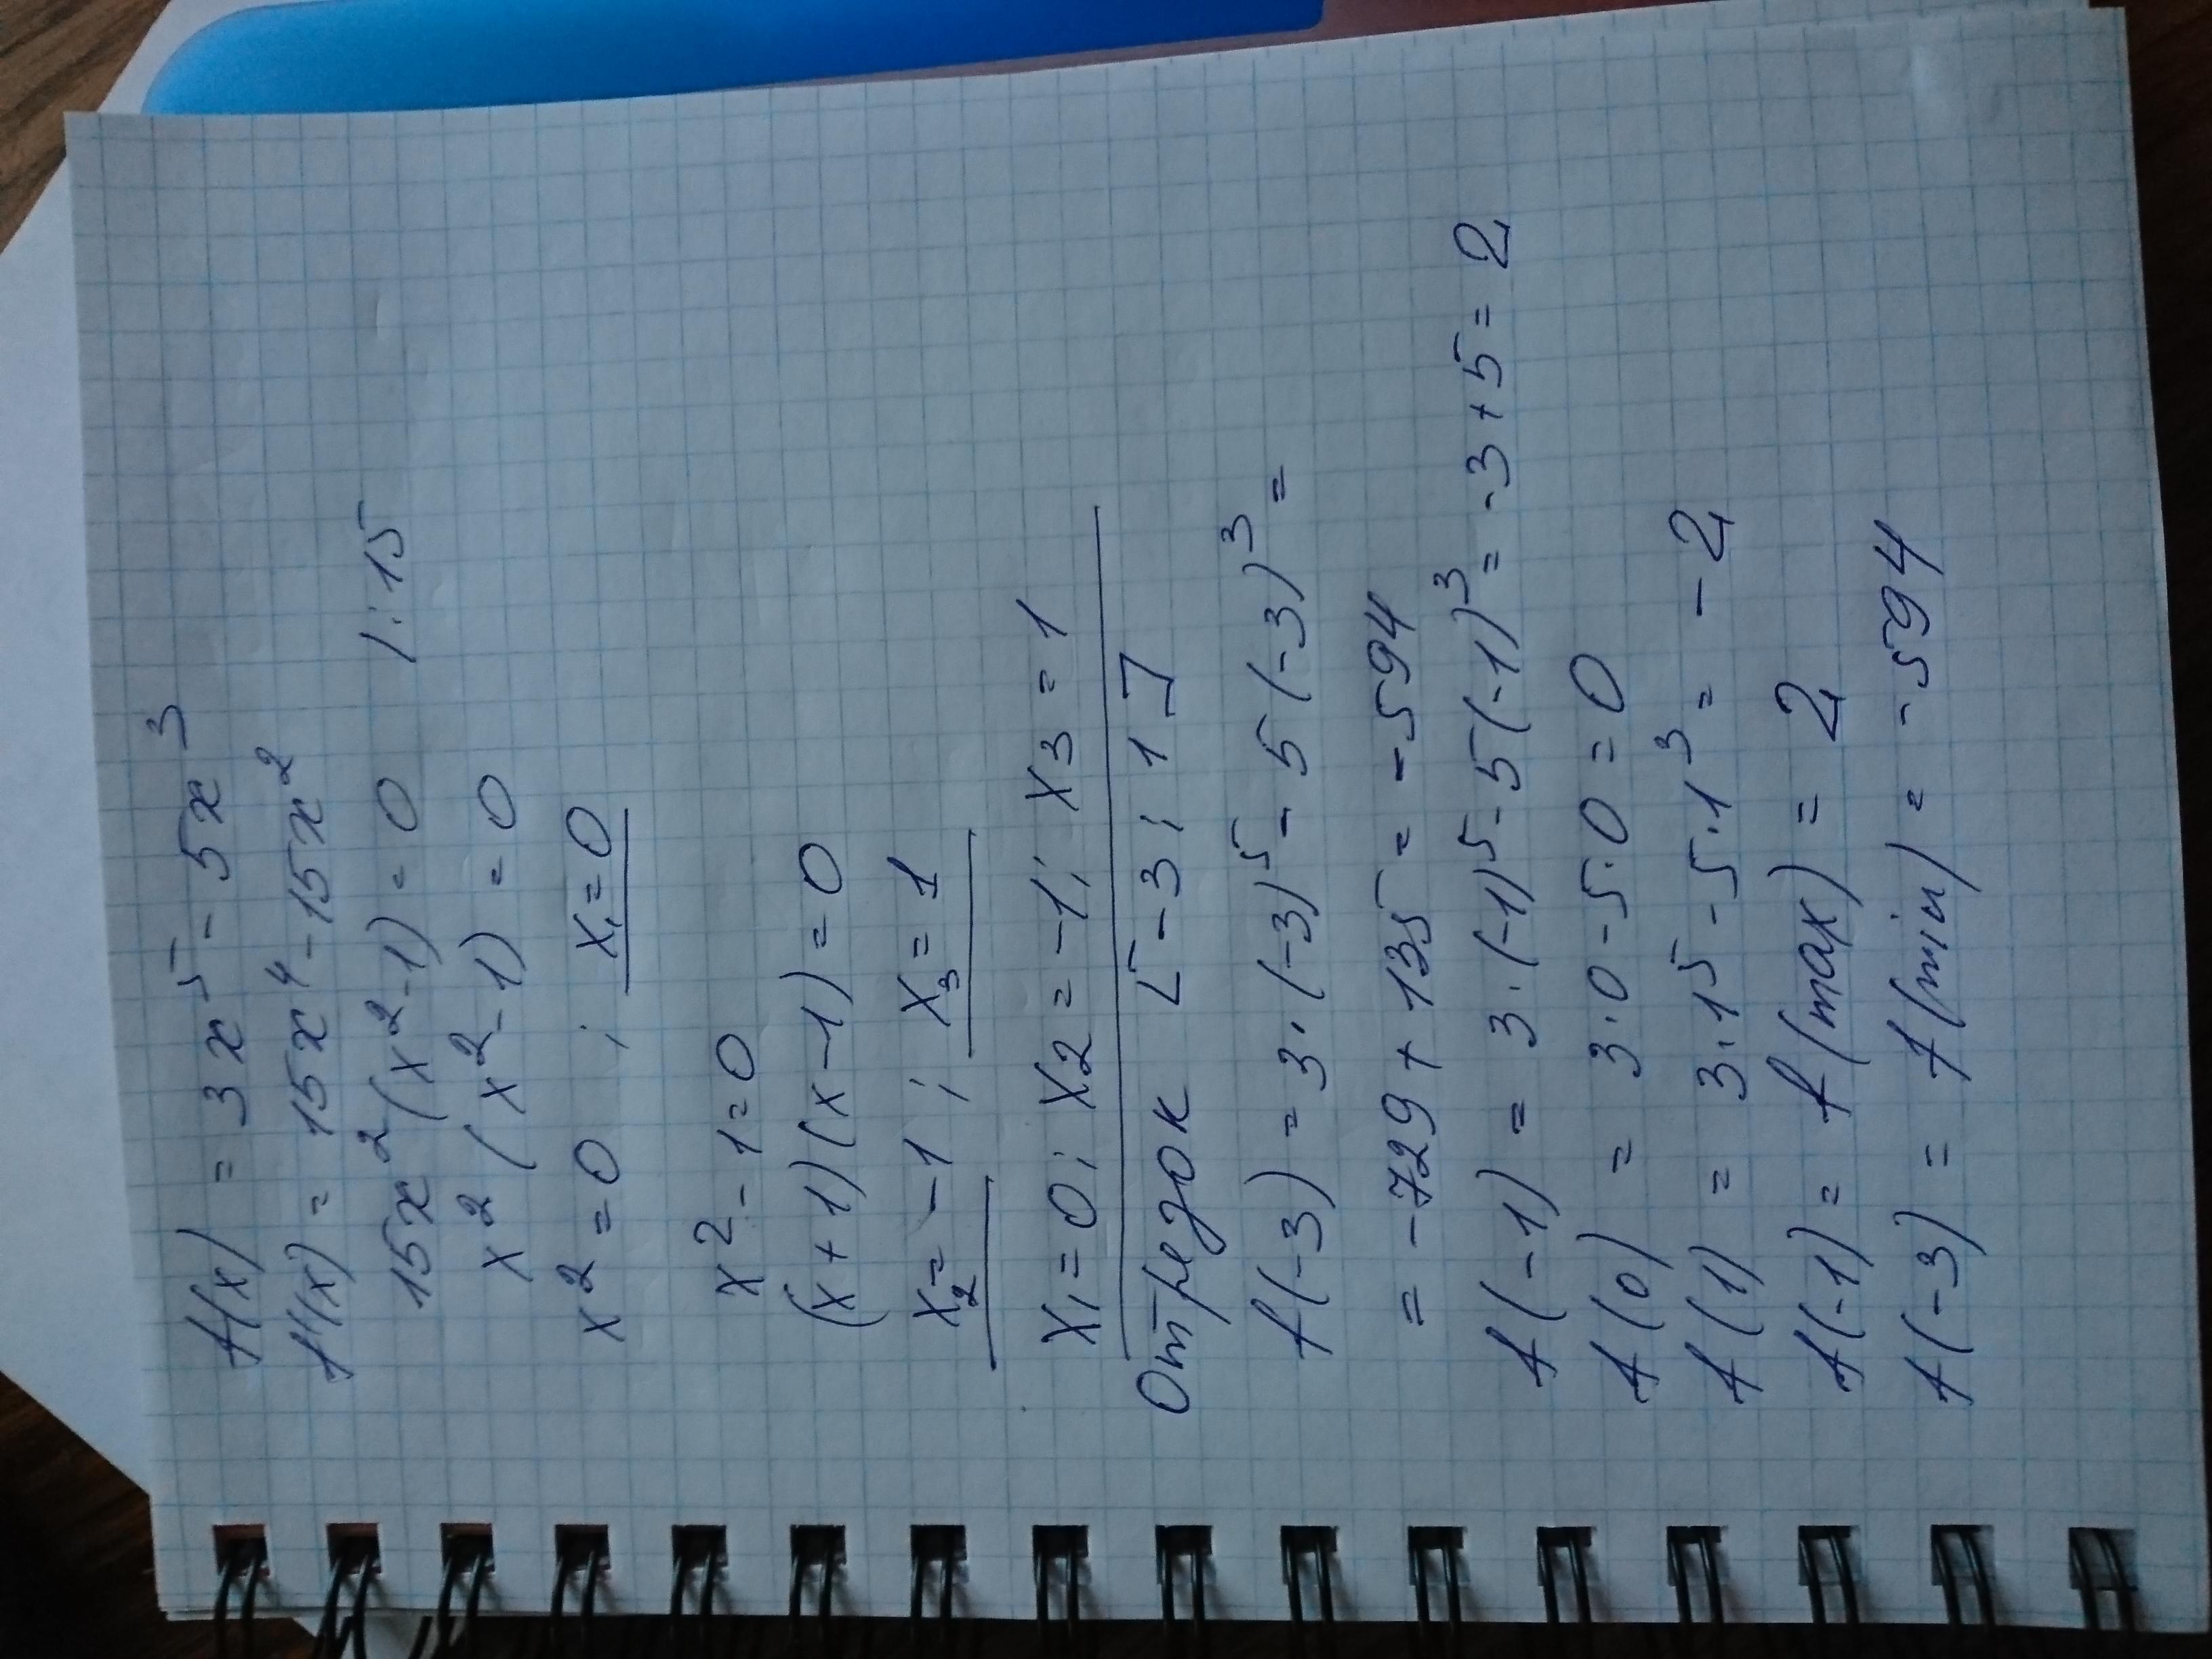 f(x) = 3x⁵ - 5x³
f'(x) = 15x⁴ - 15x²
15x²(x²-1) = 0 | :15
x²(x²-1) = 0
x² = 0 ; x₁ = 0
x² - 1 = 0
(x+1)(x-1) = 0
x₂ = -1 ; x₃ = 1
x₁ = 0; x₂ = -1; x₃ = 1
Отрезок [-3; 1]
f(-3) = 3·(-3)⁵ - 5(-3)³ =
= -729 + 135 = -594
f(-1) = 3·(-1)⁵ - 5(-1)³ = -3+5 = 2
f(0) = 3·0 - 5·0 = 0
f(1) = 3·1⁵ - 5·1³ = -2
f(-1) = f(max) = 2
f(-3) = f(min) = -594